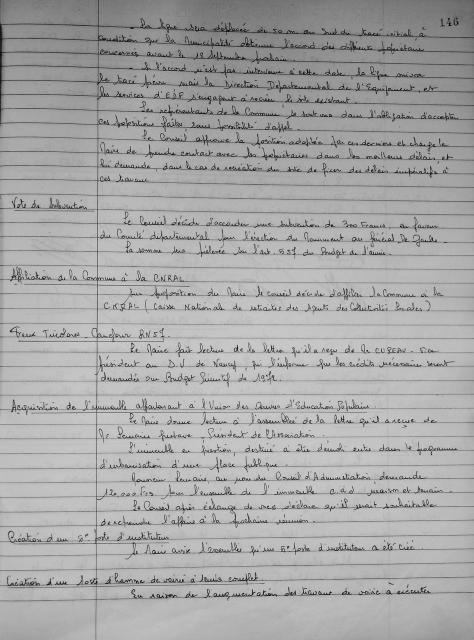 146
- La ligne sera déplacée de 50 m au Sud du tracé initial, à
condition que la Municipalité obtienne l'accord des différents propriétaires
concernés avant le 15 Septembre prochain.
- Si l'accord n'est pas intervenu à cette date, la ligne suivra
le tracé prévu mais la Direction Départementale de l'Equipement et
les services d'EDF s'engagent à recréer le site existant.
Les représentants de la Commune se sont vus dans l'obligation d'accepter
ces propositions faites sans possibilité d'appel.
Le Conseil approuve la position adoptée par ces derniers et charge le
Maire de prendre contact avec les propriétaires dans les meilleurs délais, et
lui demande, dans le cas de recréation du site de fixer des délais impératifs à
ces travaux
Vote de Subvention
Le Conseil décide d'accorder une subvention de 300 Francs, en faveur
du Comité départemental pour l'érection du Monument au Général De Gaulle.
La somme sera prélevée sur l'art. 657 du Budget de l'année.
Affiliation de la Commune à la CNRAL
Sur proposition du Maire le conseil décide d'affilier la Commune à la
CNRAL (Caisse Nationale de retraites des Agents des Collectivités Locales)
Feux Tricolores Carrefour RN 57.
Le Maire fait lecture de la lettre qu'il a reçue de Mr CUREAU
président au D.U de Nancy, qui l'informe que les crédits nécessaires seront
demandés au Budget Primitif de 1972.
Acquisition de l'immeuble appartenant à l'Union des Oeuvres d'Education Populaire
Le Maire donne lecture à l'assemblée de la lettre qu'il a reçue de
Mr Lemaire Gustave, Président de l'Association.
L'immeuble en question, destiné à être démoli entre dans le programme
d'urbanisation d'une place publique.
Monsieur Lemaire, au nom du Conseil d'Administration, demande
120.000 Frs pour l'ensemble de l'immeuble c.a.d maison et terrain.
Le Conseil après échange de vues déclare qu'il serait souhaitable
de rechercher l'affaire à la prochaine réunion.
Création d'un 5° poste d'instituteur
Le Maire avise l'assemblée qu'un 5° poste d'instituteur a été créé.
Création d'un Poste d'homme de voirie à temps complet.
En raison de l'augmentation des travaux de voirie à exécuter